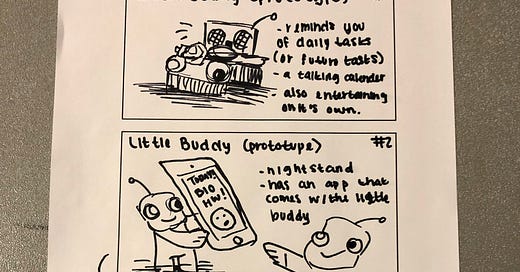 (prototype)
- reminds you
of daily tasks
(or future tasks)
- a talking calender
- also entertaining
on it's own.
Little Buddy (prototype) #2
- nightstand
- has an app that
comes w/the little
buddy
TODAY'S
BIO
HW!